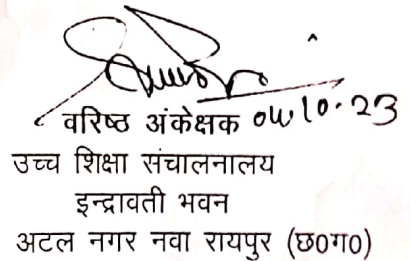 वरिष्ठ अंकेक्षक 04.10.23
उच्च शिक्षा संचालनालय
इन्द्रावती भवन
अटल नगर नवा रायपुर (छ0ग0)